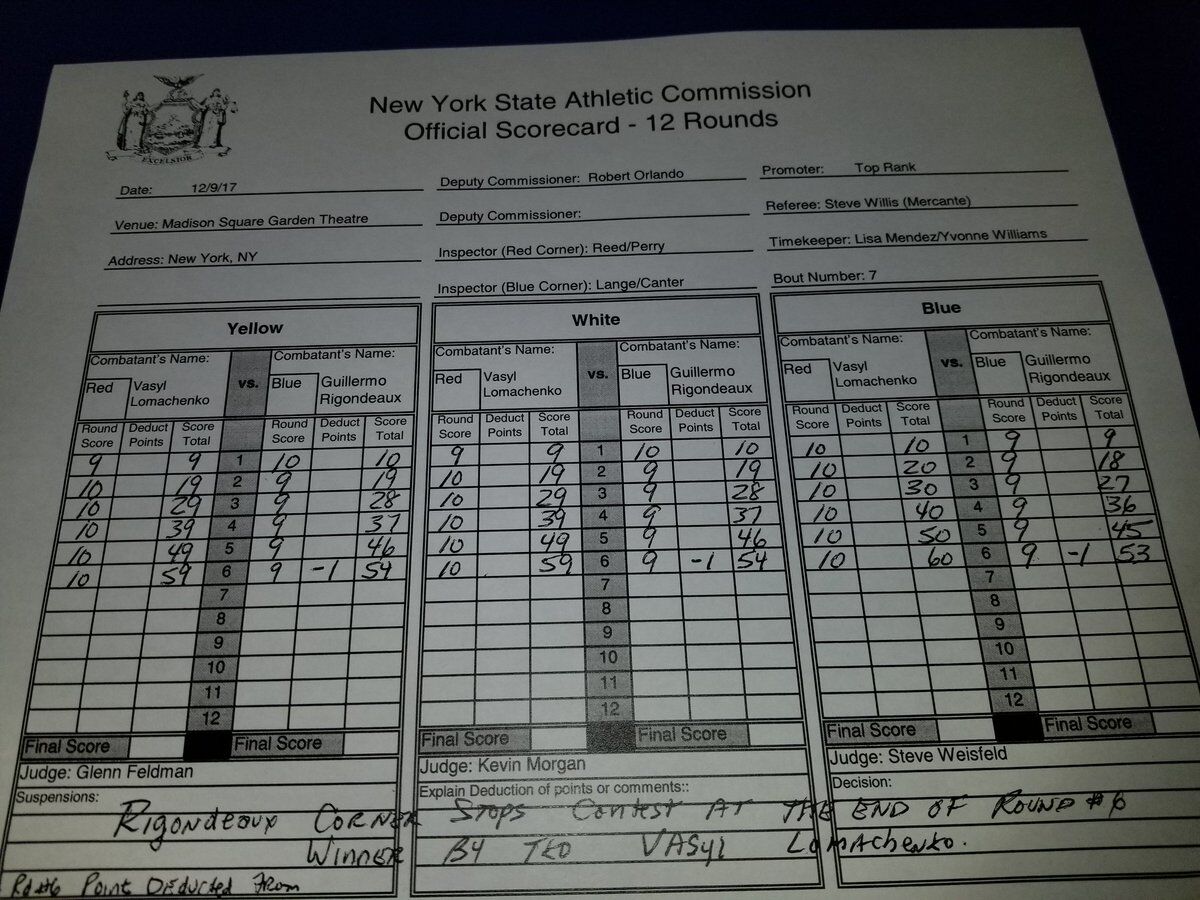 EXCELSIOR
New York State Athletic Commission
Official Scorecard - 12 Rounds
Date: 12/9/17
Deputy Commissioner: Robert Orlando
Promoter: Top Rank
Venue: Madison Square Garden Theatre
Deputy Commissioner:
Referee: Steve Willis (Mercante)
Address: New York, NY
Inspector (Red Corner): Reed/Perry
Timekeeper: Lisa Mendez/Yvonne Williams
Inspector (Blue Corner): Lange/Canter
Bout Number: 7
Yellow
Combatant's Name: vs. Combatant's Name:
Red Vasyl Lomachenko Blue Guillermo Rigondeaux
Round Score Deduct Points Score Total Round Score Deduct Points Score Total
9 9 1 10 10
10 19 2 9 19
10 29 3 9 28
10 39 4 9 37
10 49 5 9 46
10 59 6 9 -1 54
7
8
9
10
11
12
Final Score Final Score
Judge: Glenn Feldman
White
Combatant's Name: vs. Combatant's Name:
Red Vasyl Lomachenko Blue Guillermo Rigondeaux
Round Score Deduct Points Score Total Round Score Deduct Points Score Total
9 9 1 10 10
10 19 2 9 19
10 29 3 9 28
10 39 4 9 37
10 49 5 9 46
10 59 6 9 -1 54
7
8
9
10
11
12
Final Score Final Score
Judge: Kevin Morgan
Blue
Combatant's Name: vs. Combatant's Name:
Red Vasyl Lomachenko Blue Guillermo Rigondeaux
Round Score Deduct Points Score Total Round Score Deduct Points Score Total
10 10 1 9 9
10 20 2 9 18
10 30 3 9 27
10 40 4 9 36
10 50 5 9 45
10 60 6 9 -1 53
7
8
9
10
11
12
Final Score Final Score
Judge: Steve Weisfeld
Suspensions: Explain Deduction of points or comments:: Decision:
Rigondeaux Corner Stops Contest At The End Of Round #6
Winner By TKO Vasyl Lomachenko.
Rd #6 Point Deducted From